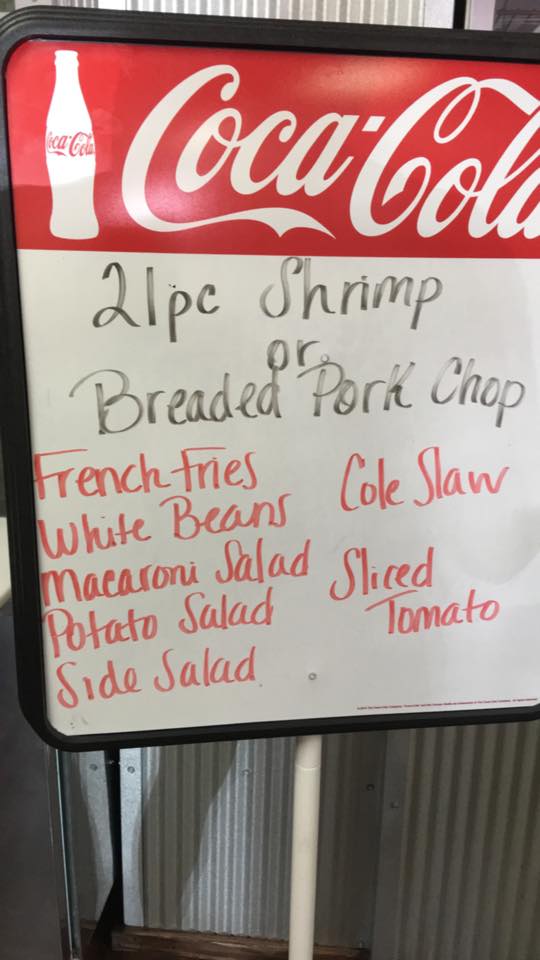 Coca-Cola
Coca-Cola
21pc Shrimp
or
Breaded Pork Chop
French Fries
White Beans
Macaroni Salad
Potato Salad
Side Salad
Cole Slaw
Sliced
Tomato